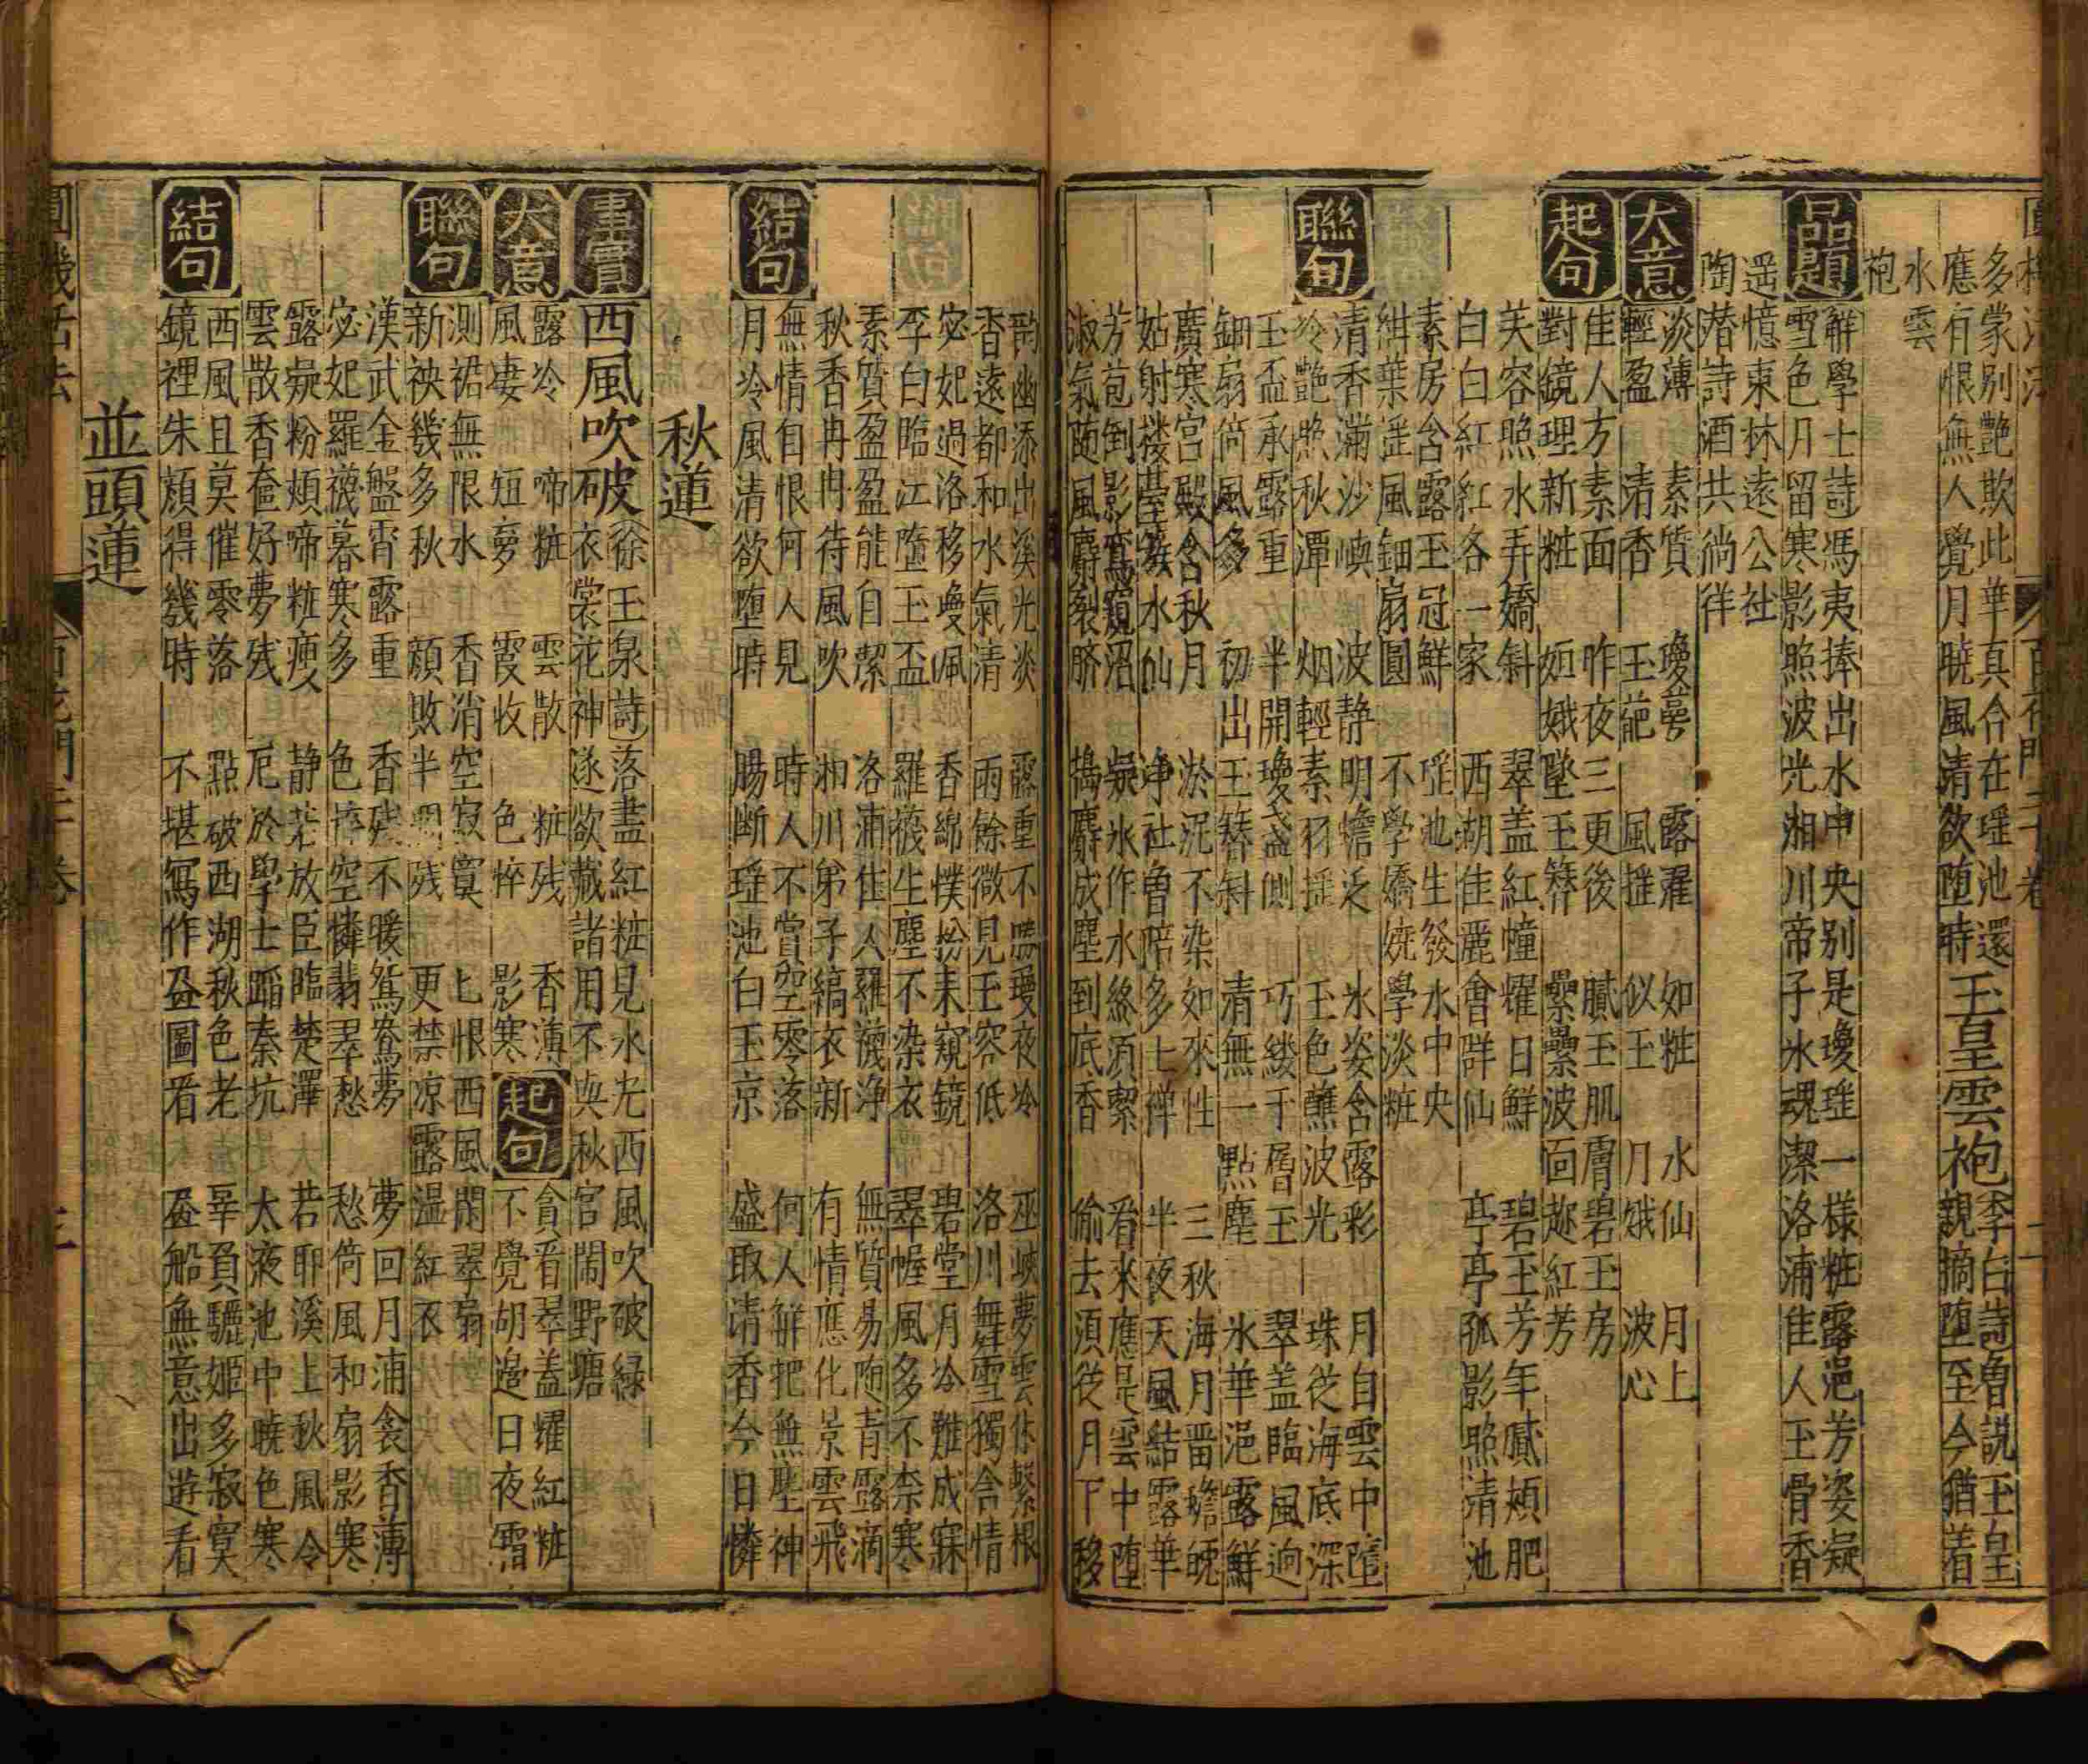 多蒙別艷欺此華真合在瑶池還
應有恨無人覺月曉風清欲堕時
玉皇雲袍
李白詩魯説玉皇
親摘堕至今猶着
水雲
袍
品題
觧學士詩馮夷捧出水中央别是瓊瑶一様粧露浥芳姿凝
雪色月留寒影照波光湘川帝子氷魂潔洛浦佳人玉骨香
遥憶東林遠公社
陶潜詩酒共徜徉
大意
淡薄 素質 瓊葩 露濯 如粧 水仙 月上
輕盈 清香 玉葩 風摇 似玉 月娥 波心
起句
佳人方素面 昨夜三更後 膩玉肌膚碧玉房
對鏡理新粧 姮娥墜玉簪 纍纍波面趂紅芳
芙容照水弄嬌斜 翠盖紅幢耀日鮮 碧玉芳年膩頰肥
白白紅紅各一家 西湖佳麗會群仙 亭亭孤影照清池
素房含露玉冠鮮 瑶池生發水中央
紺葉遥風鈿扇圓 不學嬌嬈學淡粧
聯句
清香滿沙嶼 波静明蟾近 氷姿含露彩 月自雲中墮
冷艶照秋潭 烟輕素羽摇 玉色蘸波光 珠從海底深
玉盃承露重 半開瓊盞側 巧綾于層玉 翠盖臨風逈
鈿扇倚風多 初出玉簪斜 清無一點塵 氷華浥露鮮
廣寒宮殿含秋月 淤泥不染如來性 三秋海月畱蟾魄
姑射楼臺簇水仙 净社魯陪多士禅 半夜天風結露華
芳苞倒影鴛窺沼 凝氷作水終須絜 看來應是雲中堕
淑氣随風麝裂臍 搗麝成塵到底香 偷去須從月下移
韵幽添出溪光淡 露重不勝瓊夜冷 巫峽夢雲休繫根
香遠都和水氣清 雨餘微見玉容低 洛川舞雪獨含情
宓妃過洛移瓊佩 香綿撲粉未窺鏡 碧堂月冷難成寐
李白臨江墮玉盃 羅襪生塵不染衣 翠幄風多不柰寒
素質盈盈能自潔 洛浦佳人羅襪浄 無質易随青露滴
秋香冉冉待風吹 湘川弟子縞衣新 有情應化景雲飛
結句
無情自恨何人見 時人不賞空零落 何人觧把無塵神
月冷風清欲堕時 腸断瑶池白玉京 盛取清香今日憐
秋蓮
事實
西風吹破
徐玉泉詩落盡紅粧見水光西風吹破緑
衣裳花神遂欲藏諸用不與秋宮閙野塘
大意
露冷 啼粧 雲散 粧残 香薄
風凄 短夢 霞收 色悴 影寒
起句
貪看翠盖耀紅粧
不覺胡邉日夜霜
聯句
測裙無限水 香消空寂寞 匕恨西風閙翠扇
新袂幾多秋 頽敗半凋残 更禁凉露温紅衣
漢武金盤霄露重 香残不暖鴛鴦夢 夢回月浦衾香薄
宓妃羅襪暮寒多 色悴空憐翡翠愁 愁倚風和扇影寒
露凝粉頰啼粧痩 静若放臣臨楚澤 若耶溪上秋風冷
雲散香奩好夢残 厄於學士蹈秦坑 太液池中曉色寒
結句
西風且莫催零落 點破西湖秋色老 辜負驪姬多寂寞
鏡裡朱顔得幾時 不堪寫作盈圖看 盈船無意出遊看
並頭蓮